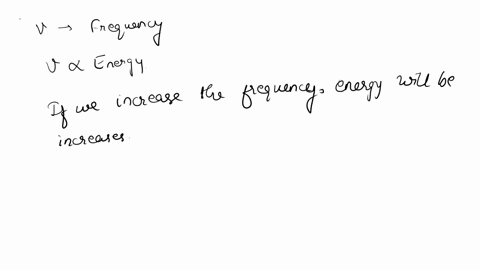 ν → Frequency
ν ∝ Energy
If we increase the frequency, energy will be
increases.